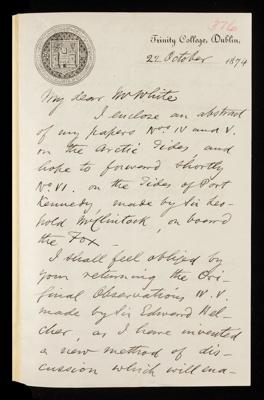 376
Trinity College, Dublin.
22 October 1874
My dear Mr White
I enclose an abstract
of my papers Nos. IV and V.
on the Arctic Tides and
hope to forward shortly
No. VI. on the Tides of Port
Kennedy, made by Sir Leo-
pold McClintock, on board
the Fox.
I shall feel obliged by
your returning the Ori-
ginal Observations IV. V.
made by Sir Edward Bel-
cher, as I have invented
a new method of dis-
cussion which will ena-